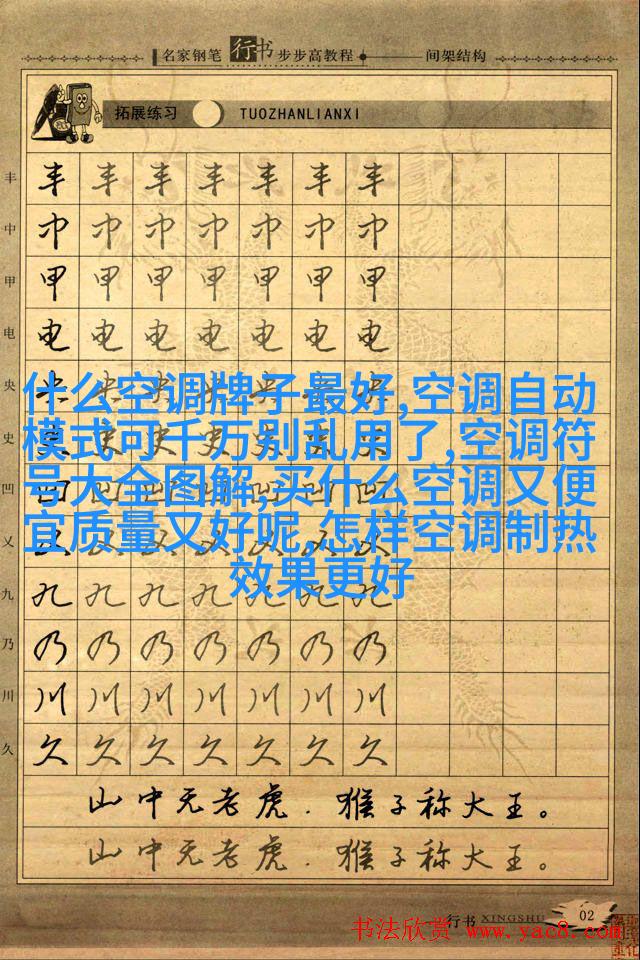 名家钢笔 行书 步步高教程 间架结构
拓展练习 TUOZHANLIANXI
丰 丰 丰 丰 丰 丰 丰 丰
中 中 中 中 中 中 中 中
甲 甲 甲 甲 甲 甲 甲 甲
电 电 电 电 电 电 电 电
央 央 央 央 央 央 央 央
什么空调牌子最好,空调自动
史 史 史 史 史 史 史 史
模式可千万别乱用了,空调符
凹 凹 凹 凹 凹 凹 凹 凹
号大全图解,买什么空调又便
义 义 义 义 义 义 义 义
宜质量又好呢,怎样空调制热
效果更好
九 九 九 九 九 九 九 九
乃 乃 乃 乃 乃 乃 乃 乃
川 川 川 川 川 川 川 川
久 久 久 久 久 久 久 久
山中无老虎．猴子称大王。
山中无老虎．猴子称大王。
行书 XINGSHU 02
书法欣赏 www.yac8.com